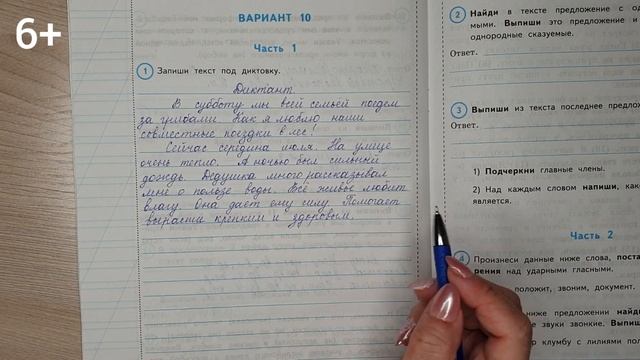 6+
ВАРИАНТ 10
Часть 1
1 Запиши текст под диктовку.
Диктант.
В субботу мы всей семьёй поедем
за грибами. Как я люблю наши
совместные поездки в лес!
Сейчас середина июля. На улице
очень тепло. А ночью был сильный
дождь. Дедушка много рассказывал
мне о пользе воды. Всё живое любит
влагу. Она даёт ему силу. Помогает
вырасти крепким и здоровым.
2 Найди в тексте предложение с од
ными. Выпиши это предложение и
однородные сказуемые.
Ответ.
3 Выпиши из текста последнее предло
Ответ.
1) Подчеркни главные члены.
2) Над каждым словом напиши, как
является.
Часть 2
4 Произнеси данные ниже слова, поста
рения над ударными гласными.
положит, звоним, документ.
ниже предложении найди
е звуки звонкие. Выпиш
ю клумбу с лилиями пол